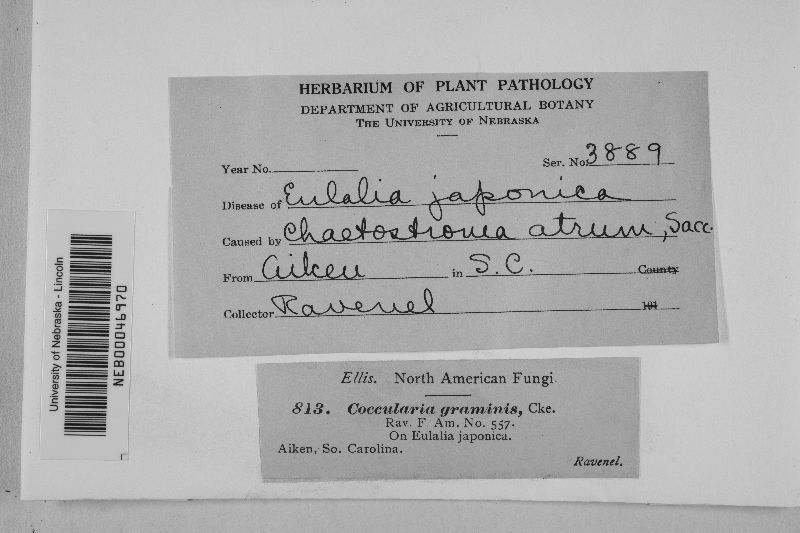 HERBARIUM OF PLANT PATHOLOGY
DEPARTMENT OF AGRICULTURAL BOTANY
THE UNIVERSITY OF NEBRASKA
Year No. Ser. No. 3889
Disease of Eulalia japonica
Caused by Chaetostroma atrum, Sacc.
From Aiken in S.C. County
Collector Ravenel 191
University of Nebraska - Lincoln
NEB00046970
Ellis. North American Fungi
813. Coccularia graminis, Cke.
Rav. F Am. No. 557.
On Eulalia japonica.
Aiken, So. Carolina.
Ravenel.